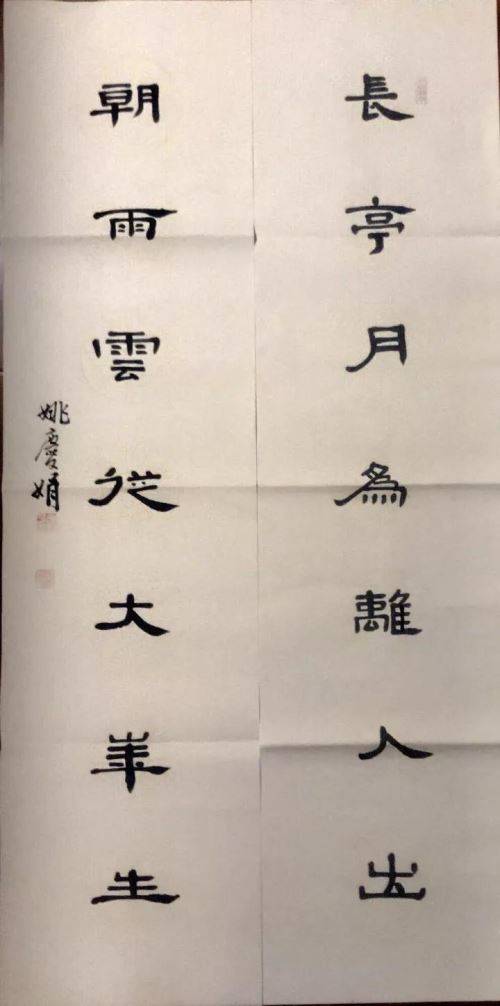 長亭月為離人出
朝雨雲從大峯生
姚慶娟